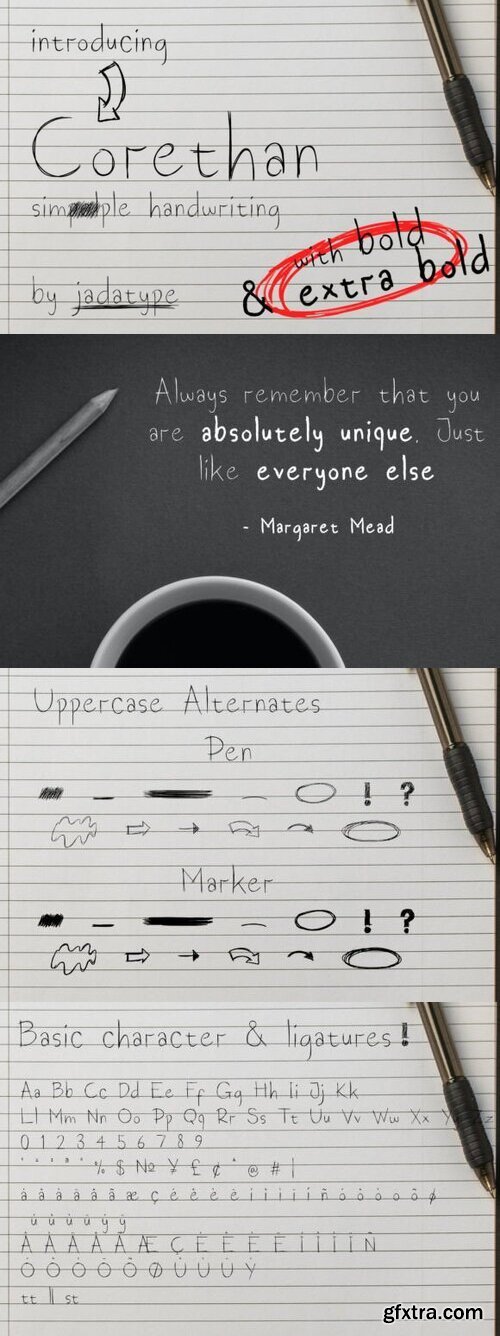 introducing
Corethan
simple handwriting
with bold
& extra bold
by jadatype
Always remember that you
are absolutely unique. Just
like everyone else
- Margaret Mead
Uppercase Alternates
Pen
! ?
Marker
! ?
Basic character & ligatures!
Aa Bb Cc Dd Ee Ff Gg Hh Ii Jj Kk
Ll Mm Nn Oo Pp Qq Rr Ss Tt Uu Vv Ww Xx
0 1 2 3 4 5 6 7 8 9
% $ № ¥ £ ¢ @ # |
tt ll st
gfxtra.com